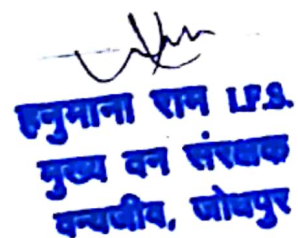 हनुमाना राम I.F.S.
मुख्य वन संरक्षक
वन्यजीव, जोधपुर